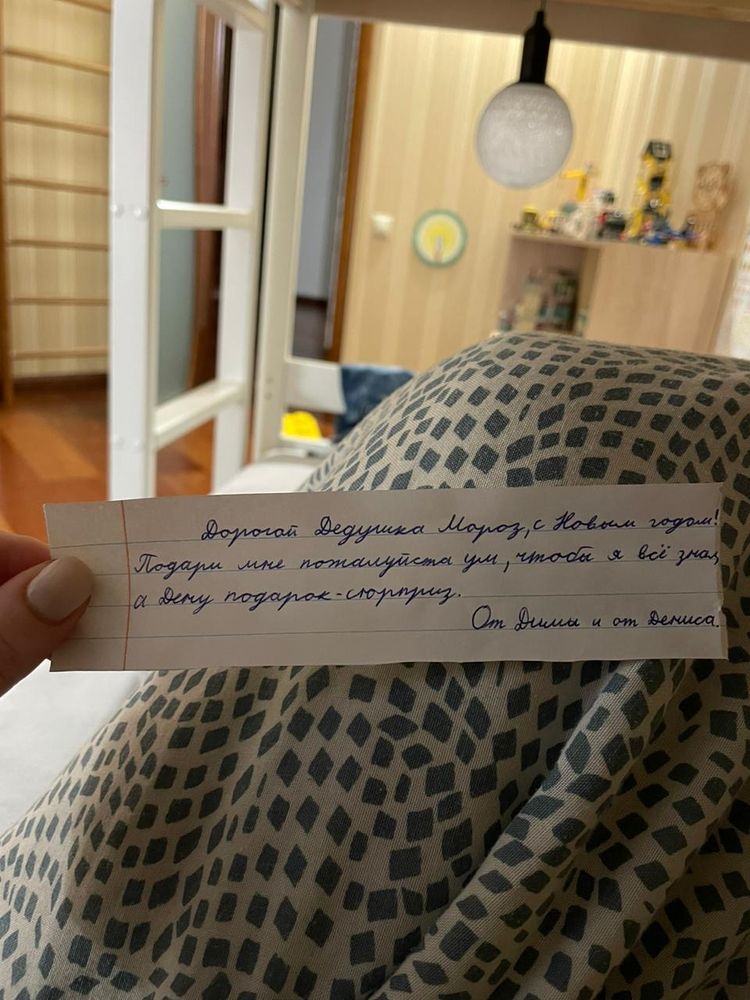 Дорогой Дедушка Мороз, с Новым годом!
Подари мне пожалуйста ум, чтобы я всё знал,
а Дену подарок-сюрприз.
От Димы и от Дениса.